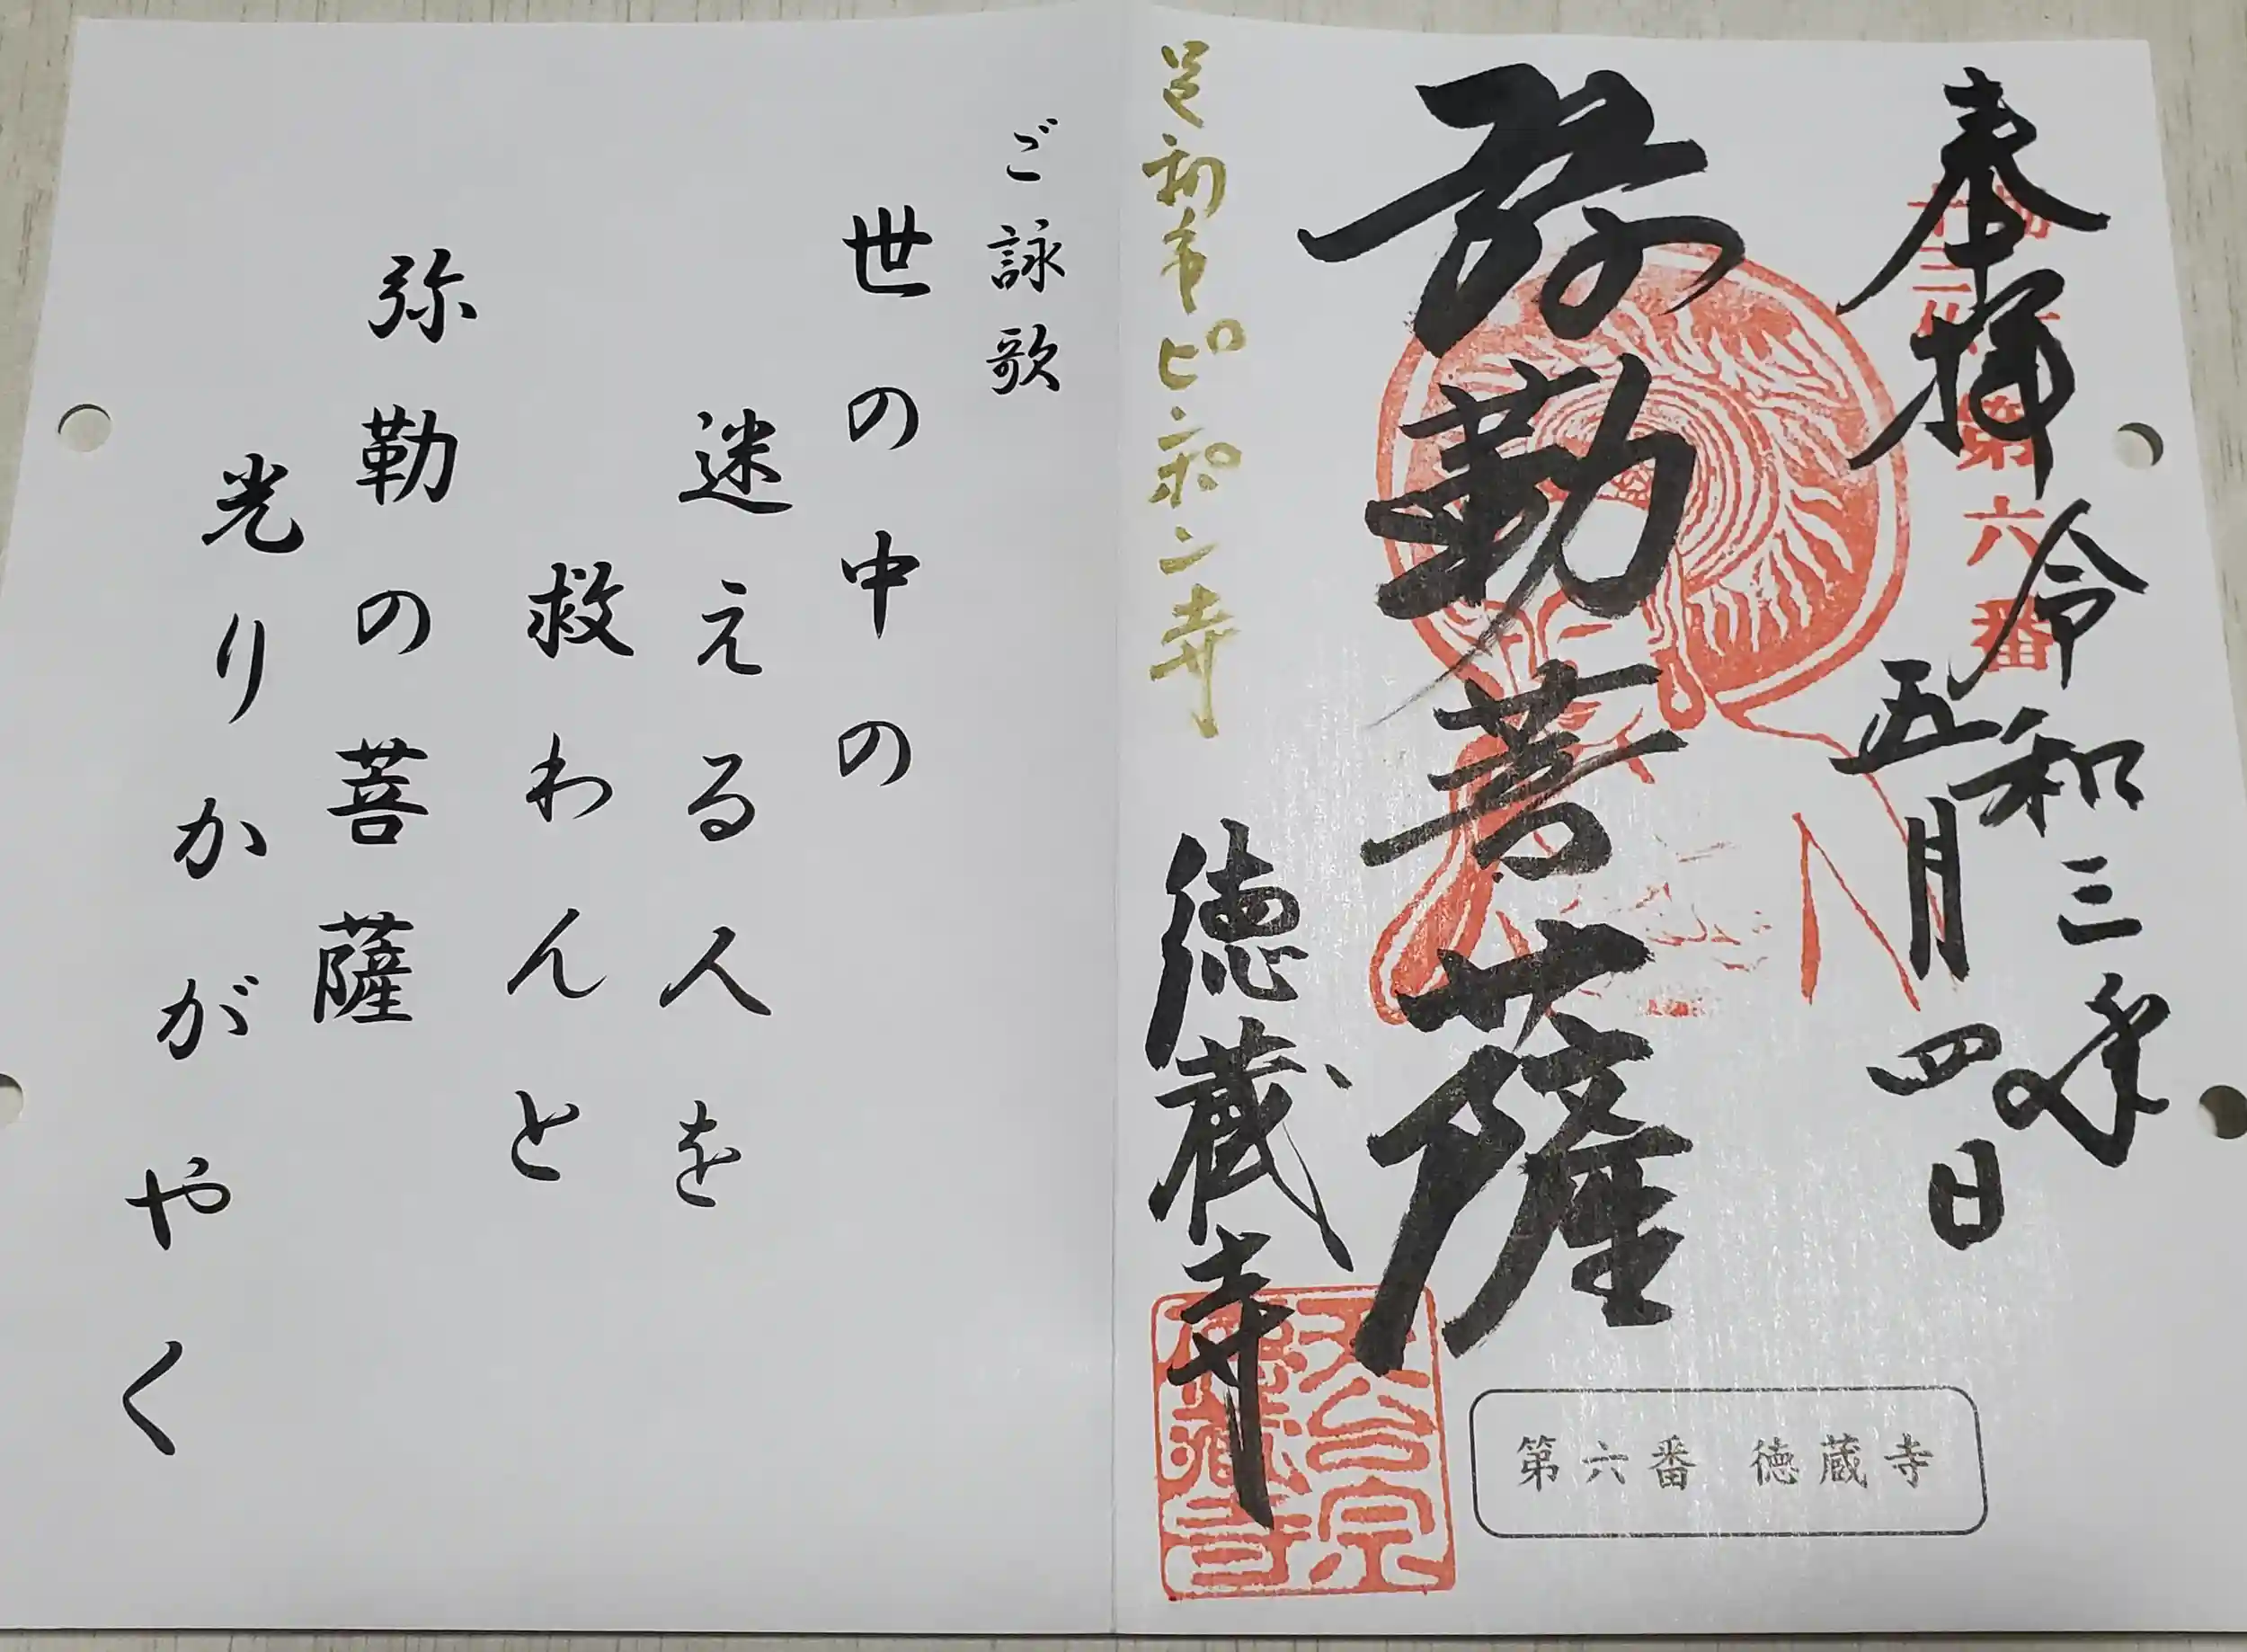 奉拝
令和三年
五月四日
第六番
弥勒菩薩
徳蔵寺
天台宗
徳蔵寺
足利市ピポニ寺
第六番 徳蔵寺
ご詠歌
世の中の
迷える人を
救わんと
弥勒の菩薩
光りかがやく